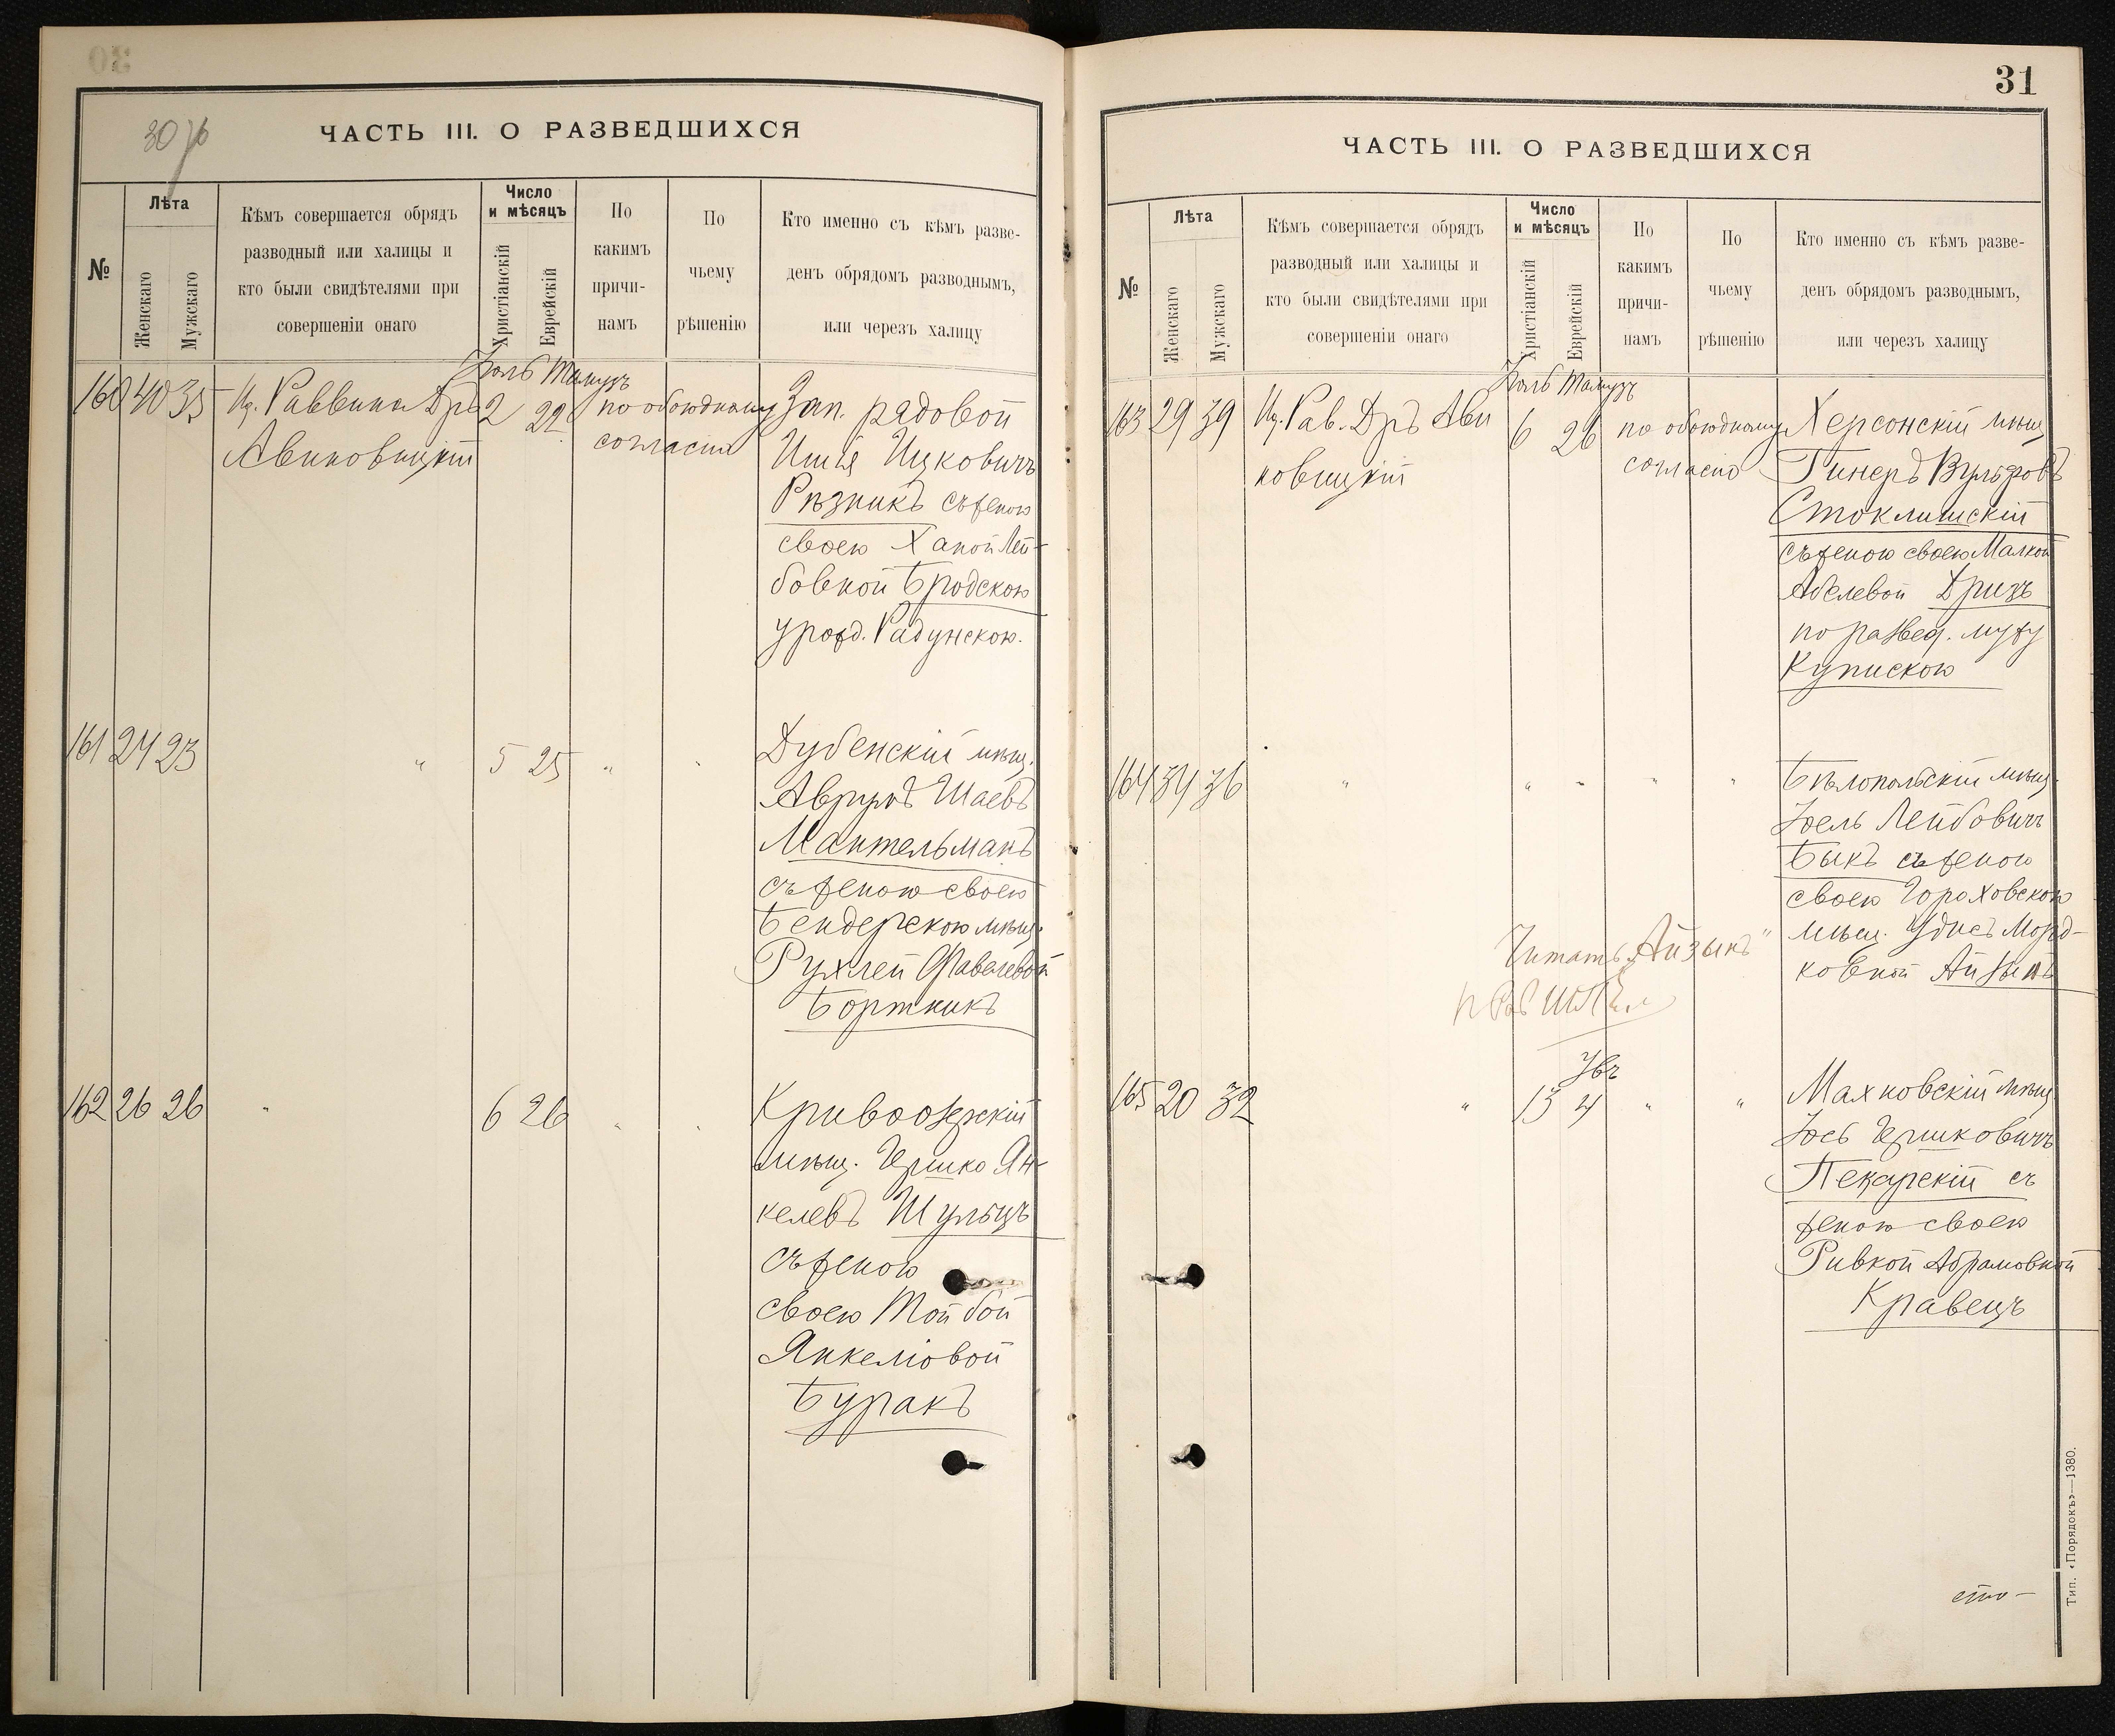 30
30 об
ЧАСТЬ III. О РАЗВЕДШИХСЯ
№
Лѣта
Женскаго
Мужскаго
Кѣмъ совершается обрядъ
разводный или халицы и
кто были свидѣтелями при
совершеніи онаго
Число
и мѣсяцъ
Христіанскій
Еврейскій
По
какимъ
причи-
намъ
По
чьему
рѣшенію
Кто именно съ кѣмъ разве-
денъ обрядомъ разводнымъ,
или черезъ халицу
Іюль Тамузъ
160 40 35
Иг. Раввина Дръ
Авиновицкій
2 22
по обоюдному
согласію
Зап. рядовой
Ицковичъ
Рѣзникъ съ женою
своею Ханой Лей-
бовной Бродскою
урожд. Радунскою.
161 24 23
" 5 25 " "
Дубенскій мѣщ.
Шаевъ
Мантельманъ
съ женою своею
Бендерскою мѣщ.
Рухлей Фавелевой
Бортникъ
162 26 26
" 6 26 " "
Кривоозерскій
мѣщ. Гершко Ян-
келевъ Шульцъ
съ женою
своею Тойбой
Янкеліовой
Буракъ
31
ЧАСТЬ III. О РАЗВЕДШИХСЯ
№
Лѣта
Женскаго
Мужскаго
Кѣмъ совершается обрядъ
разводный или халицы и
кто были свидѣтелями при
совершеніи онаго
Число
и мѣсяцъ
Христіанскій
Еврейскій
По
какимъ
причи-
намъ
По
чьему
рѣшенію
Кто именно съ кѣмъ разве-
денъ обрядомъ разводнымъ,
или черезъ халицу
Іюль Тамузъ
163 29 39
Иг. Рав. Дръ Ави
новицкій
6 26
по обоюдному
согласію
Херсонскій мѣщ
Гинеръ Вульфовъ
Стоклишскій
съ женою своею Малкой
Абелевой Дризъ
по развед. мужу
Купискою
164 34 36
" " " " "
Бѣлопольскій мѣщ.
Іоель Лейбовичъ
Быкъ съ женою
своею Гороховскою
мѣщ. Удисъ Морд-
ковной
Читать „Айзыкъ"
165 20 32
" 13 4 " "
Махновскій мѣщ
Іось Гершковичъ
Пекарскій съ
женою своею
Ривкой Абрамовной
Кравецъ
Тип. «Порядокъ»—1380.